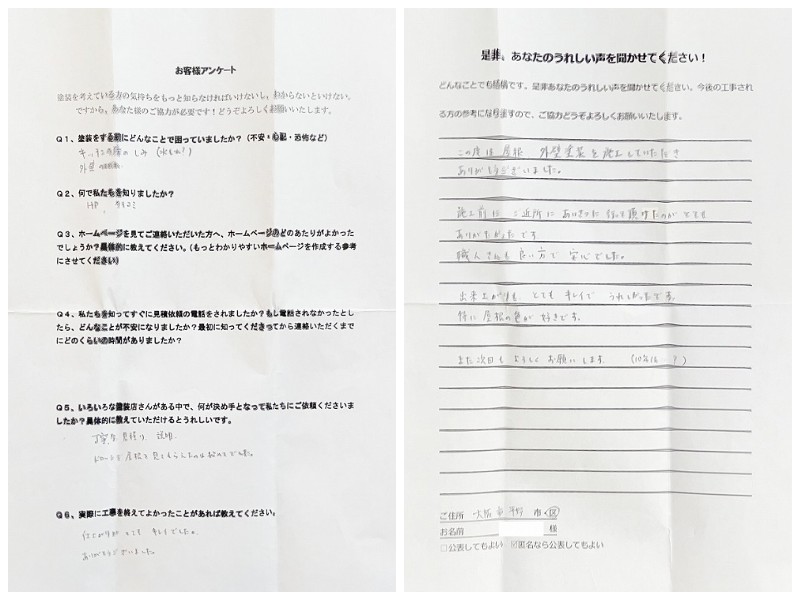 お客様アンケート
塗装を考えている方の気持ちをもっと知らなければいけないし、わからないといけない。
ですから、あなた様のご協力が必要です！どうぞよろしくお願いいたします。
Q1、塗装をする前にどんなことで困っていましたか？（不安・心配・恐怖など）
キッチンの窓の しみ（水もれ?）
外壁の
Q2、何で私たちを知りましたか？
HP 、クチコミ
Q3、ホームページを見てご連絡いただいた方へ、ホームページのどのあたりがよかった
でしょうか？具体的に教えてください。（もっとわかりやすいホームページを作成する参考
にさせてください）
Q4、私たちを知ってすぐに見積依頼の電話をされましたか？もし電話されなかったとし
たら、どんなことが不安になりましたか？最初に知ってくださってから連絡いただくまで
にどのくらいの時間がありましたか？
Q5、いろいろな塗装店さんがある中で、何が決め手となって私たちにご依頼くださいま
したか？具体的に教えていただけるとうれしいです。
丁寧な 見積り 説明
ドローンで 屋根を 見てもらえたのも よかったでした。
Q6、実際に工事を終えてよかったことがあれば教えてください。
仕上がりが とても キレイでした。
ありがとうございました。
是非、あなたのうれしい声を聞かせてください！
どんなことでも結構です。是非あなたのうれしい声を聞かせてください。今後の工事され
る方の参考になりますので、ご協力どうぞよろしくお願いいたします。
この度は 屋根 外壁塗装を 施工していただき
ありがとうございました。
施工前に ご近所に あいさつに 行って頂けたのが とても
ありがたかったです
職人さんも 良い方で 安心でした。
出来上がりも とても キレイで うれしかったです。
特に 屋根の色が 好きです。
また次回も よろしく お願いします （10年後…？）
ご住所 大阪市 平野 市・区
お名前 様
□公表してもよい ☑匿名なら公表してもよい